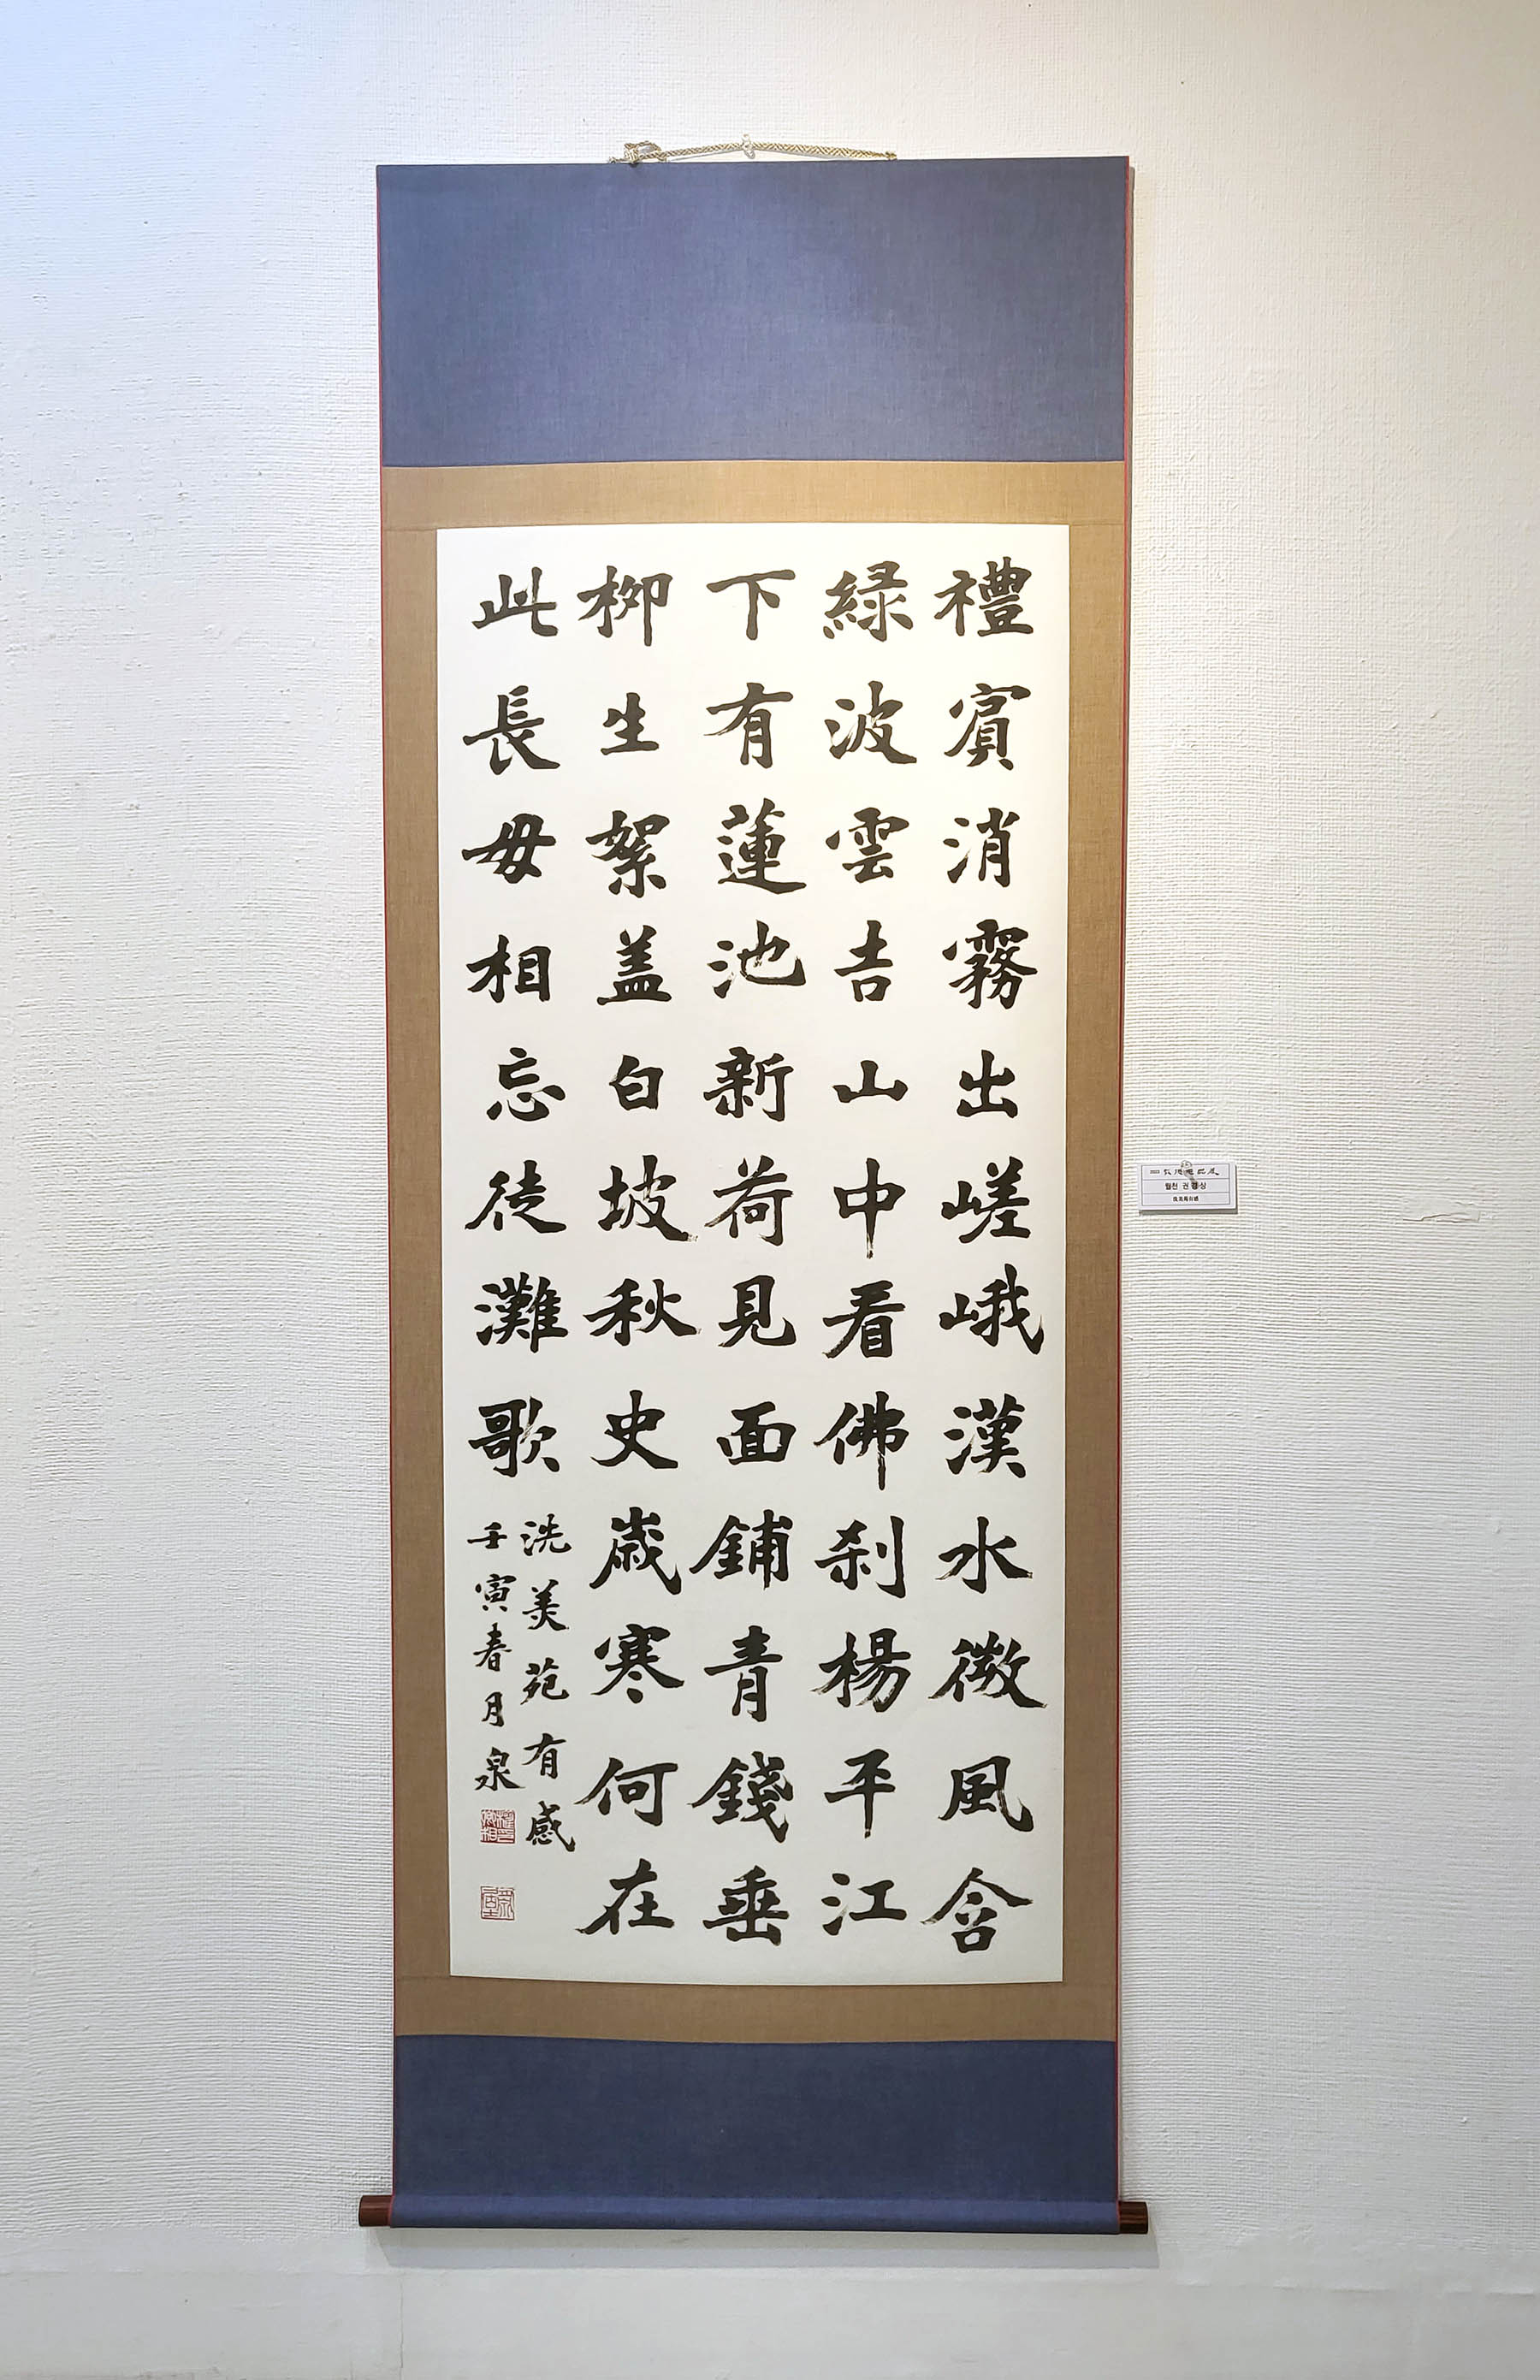 禮賓消霧出嵯峨漢水微風含
緑波雲吉山中看佛刹楊平江
下有蓮池新荷見面鋪青錢垂
柳生絮盖白坡秋史歲寒何在
此長毋相忘徒灘歌
洗美苑有感
壬寅春月泉
월천 권경상